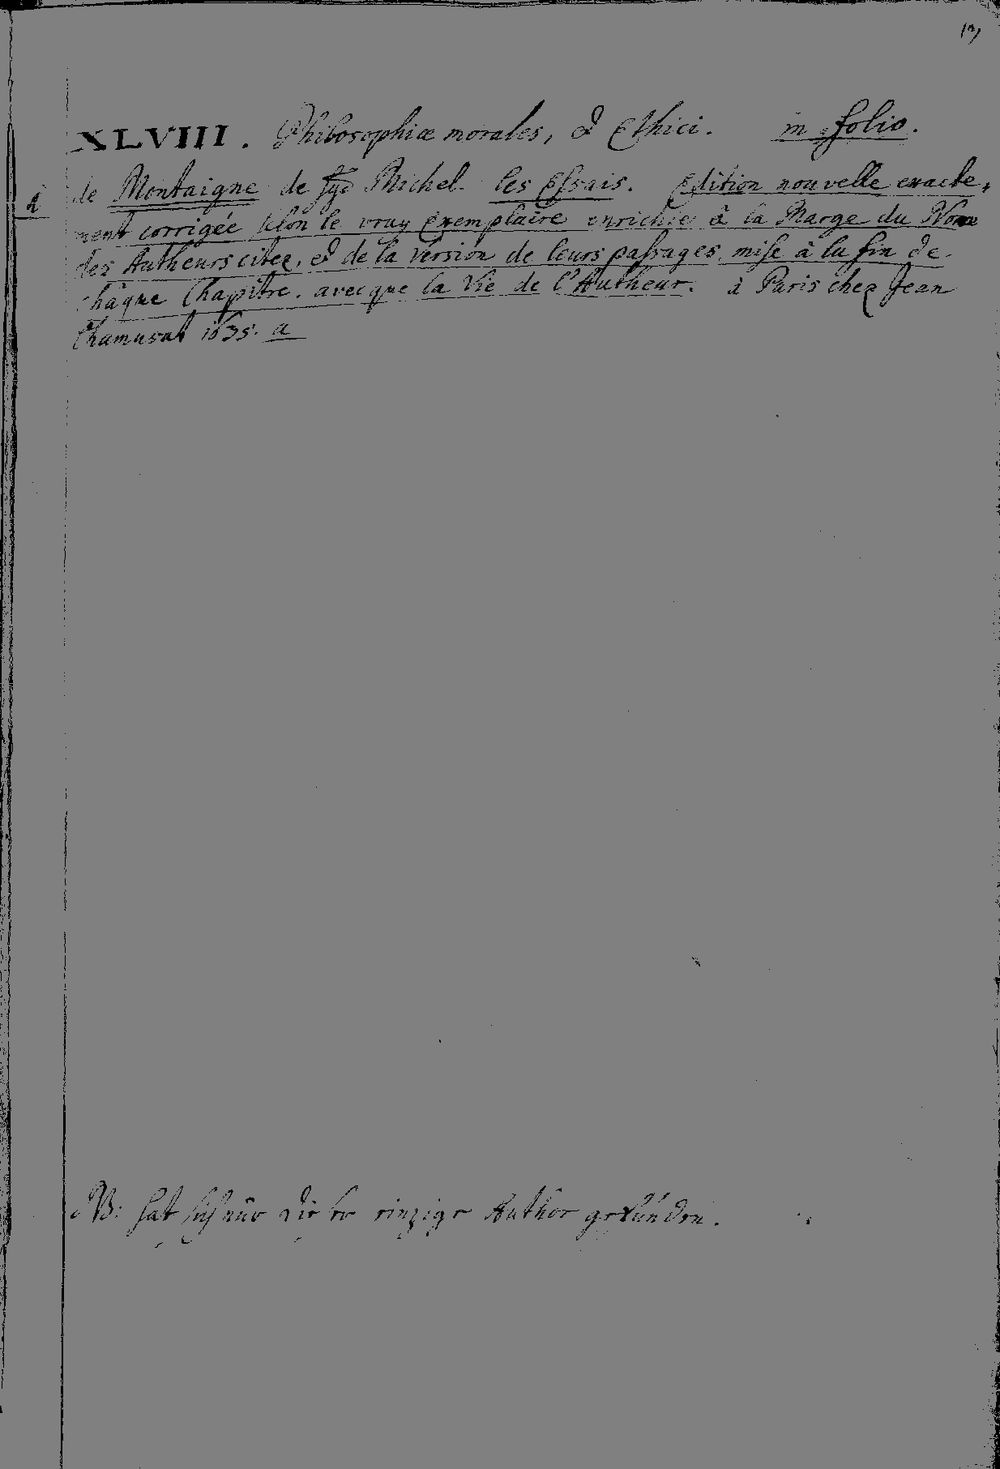 XLVIII. Philosophiæ morales, & Ethici. in folio.
1 de Montaigne de Michel. les Essais. Edition nouvelle exacte,
ment corrigée selon le vray Exemplaire enrichie à la Marge du Nom
des Autheurs citez, et de la version de leurs passages, mise à la fin de
châque Chapitre. avecque la Vie de l'Autheur. à Paris chez Jean
Chamusat 1635. a
NB: hat sich nur dieser einzige Author gefunden.